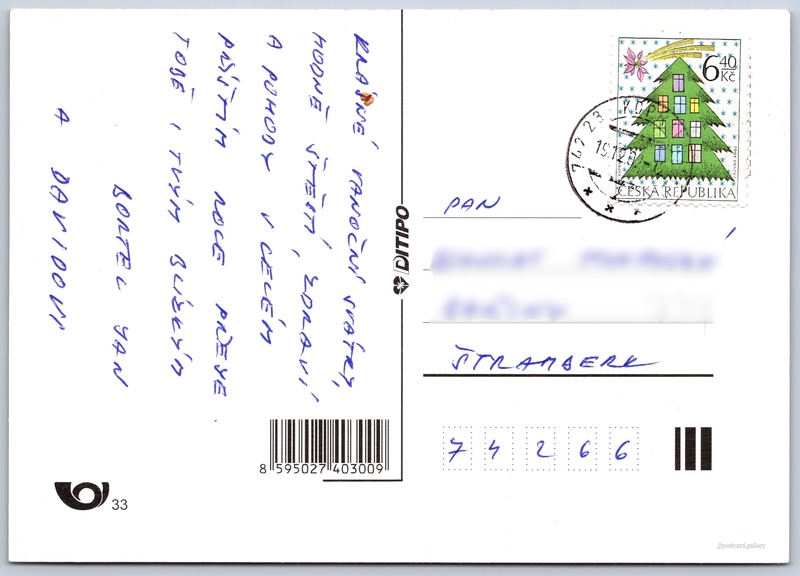 KRÁSNÉ VÁNOČNÍ SVÁTKY,
HODNĚ ŠTĚSTÍ, ZDRAVÍ
A POHODY V CELÉM
PŘÍŠTÍM ROCE PŘEJE
TOBĚ I TVÝM BLÍZKÝM
JAN
A DAVIDOVI
DITIPO
8 595027 403009
33
6,40
Kč
ČESKÁ REPUBLIKA
742 23
PAN
ŠTRAMBERK
74266